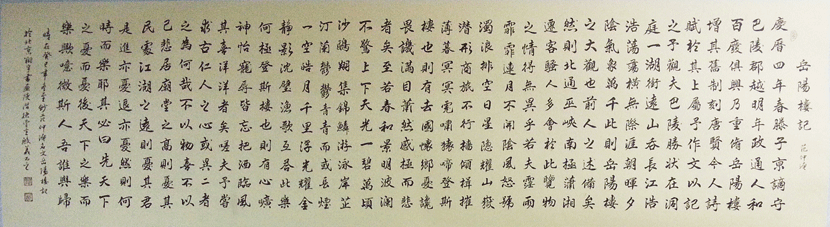 岳陽樓記 范仲淹
慶曆四年春滕子京謫守
巴陵郡越明年政通人和
百廢俱興乃重脩岳陽樓
增其舊制刻唐賢今人詩
賦於其上屬予作文以記
之予觀夫巴陵勝狀在洞
庭一湖銜遠山吞長江浩
浩蕩蕩橫無際涯朝暉夕
陰氣象萬千此則岳陽樓
之大觀也前人之述備矣
然則北通巫峽南極瀟湘
遷客騷人多會於此覽物
之情得無異乎若夫霪雨
霏霏連月不開陰風怒號
濁浪排空日星隱耀山嶽
潛形商旅不行檣傾楫摧
薄暮冥冥虎嘯猿啼登斯
樓也則有去國懷鄉憂讒
畏譏滿目蕭然感極而悲
者矣至若春和景明波瀾
不驚上下天光一碧萬頃
沙鷗翔集錦鱗游泳岸芷
汀蘭鬱鬱青青而或長煙
一空皓月千里浮光耀金
靜影沈璧漁歌互答此樂
何極登斯樓也則有心曠
神怡寵辱皆忘把酒臨風
其喜洋洋者矣嗟夫予嘗
求古仁人之心或異二者
之為何哉不以物喜不以
己悲居廟堂之高則憂其
民處江湖之遠則憂其君
是進亦憂退亦憂然則何
時而樂耶其必曰先天下
之憂而憂後天下之樂而
樂歟噫微斯人吾誰與歸